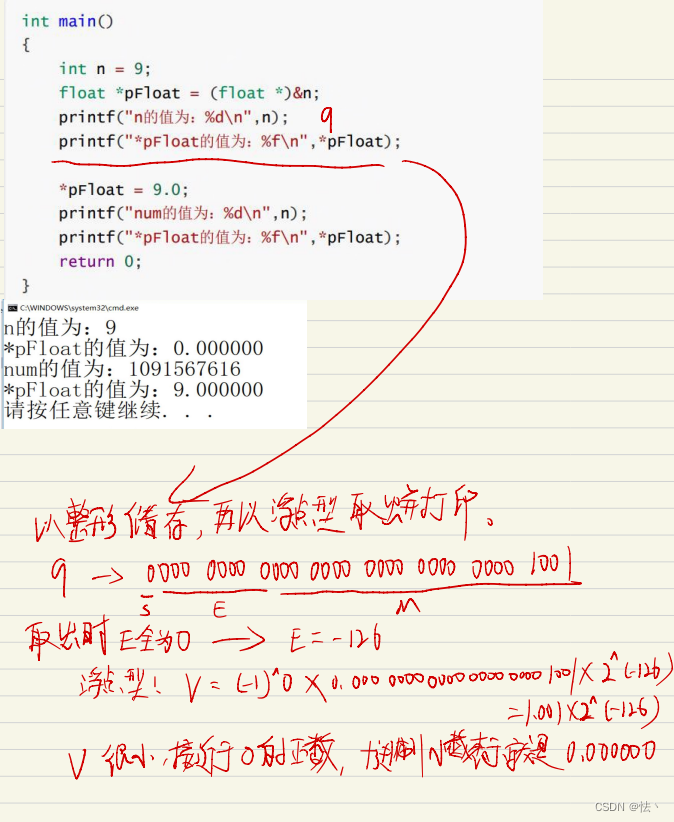 int main()
{
int n = 9;
float *pFloat = (float *)&n;
printf("n的值为：%d\n",n);
9
printf("*pFloat的值为：%f\n",*pFloat);
*pFloat = 9.0;
printf("num的值为：%d\n",n);
printf("*pFloat的值为：%f\n",*pFloat);
return 0;
}
C:\WINDOWS\system32\cmd.exe
n的值为：9
*pFloat的值为：0.000000
num的值为：1091567616
*pFloat的值为：9.000000
请按任意键继续. . .
以整形储存，再以浮点型取出并打印。
9 → 0000 0000 0000 0000 0000 0000 0000 1001
S E M
取出时 E全为0 → E = -126
浮点型： V = (-1)^0 × 0.000 0000 0000 0000 0000 1001 × 2^(-126)
= 1.001 × 2^(-126)
V 很小，接近于0的正数，十进制小数表示就是 0.000000
CSDN @怯丶